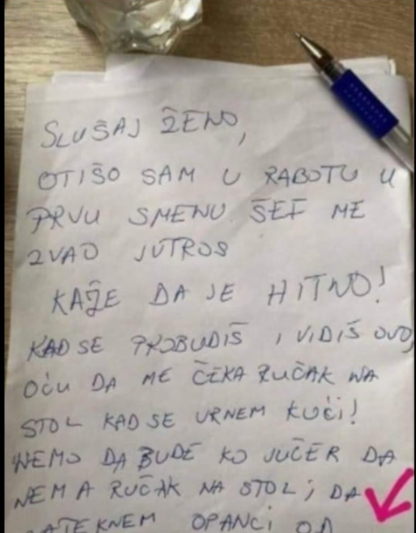 SLUŠAJ ŽENO,
OTIŠO SAM U RABOTU U
PRVU SMENU ŠEF ME
ZVAO JUTROS
KAŽE DA JE HITNO!
KAD SE PROBUDIŠ I VIDIŠ OVO,
OĆU DA ME ČEKA RUČAK NA
STOL KAD SE VRNEM KUĆI!
NEMO DA BUDE KO JUČER DA
NEMA RUČAK NA STOL I DA
OPANCI OD